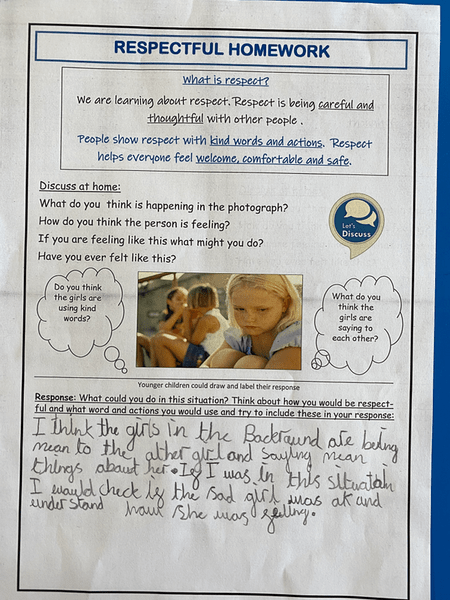 RESPECTFUL HOMEWORK
What is respect?
We are learning about respect. Respect is being careful and
thoughtful with other people .
People show respect with kind words and actions. Respect
helps everyone feel welcome, comfortable and safe.
Discuss at home:
What do you think is happening in the photograph?
How do you think the person is feeling?
If you are feeling like this what might you do?
Have you ever felt like this?
Let's
Discuss
Do you think
the girls are
using kind
words?
What do you
think the
girls are
saying to
each other?
Younger children could draw and label their response
Response: What could you do in this situation? Think about how you would be respect-
ful and what word and actions you would use and try to include these in your response:
I think the girls in the Backraund are being
mean to the ather girl and saying mean
things abaut her. If I was in this situatain
I would check if the sad girl was ok and
understand haw she was feeling.